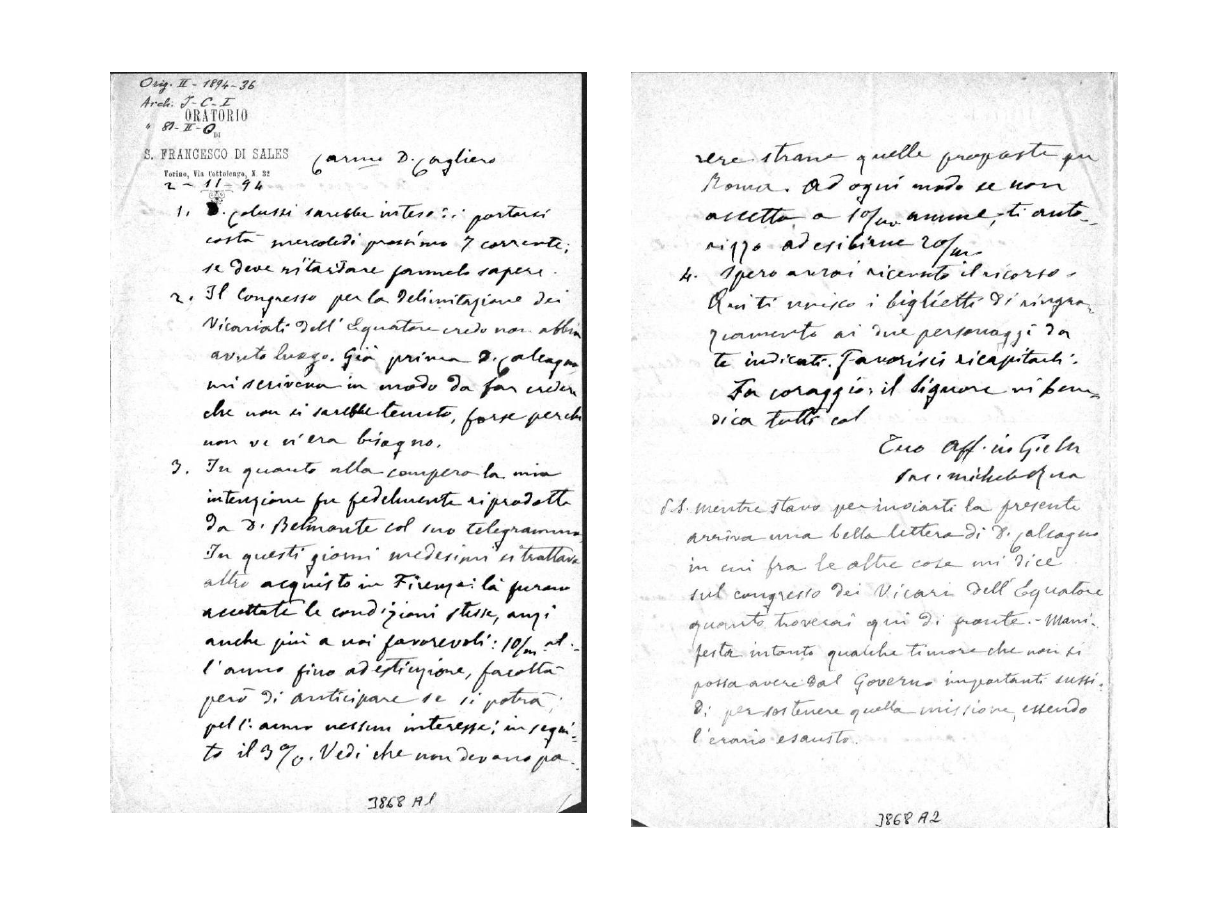 Orig. II - 1894-36
Arch. J-C-I
" 81-II-Q
ORATORIO
DI
S. FRANCESCO DI SALES
Torino, Via Cottolengo, N. 32
2-11-94
Carmo D. Cagliero
1. D. Colussi sarebbe inteso di portarsi
costà mercoledì prossimo 7 corrente;
se deve ritardare fammelo sapere.
2. Il Congresso per la delimitazione dei
Vicariati dell'Equatore credo non abbia
avuto luogo. Già prima D. Calcagno
mi scriveva in modo da far credere
che non si sarebbe tenuto, forse perchè
non ve n'era bisogno.
3. In quanto alla compera la mia
intenzione fu fedelmente riprodotta
da D. Belmonte col suo telegramma.
In questi giorni medesimi si trattava
altro acquisto in Firenze: là furono
accettate le condizioni stesse, anzi
anche più a noi favorevoli: 10/m al-
l'anno fino ad estinzione, facoltà
però di anticipare se si potrà;
pel 1° anno nessun interesse; in segui-
to il 3%. Vedi che non devono pa-
3868 A1
rere strane quelle proposte per
Roma. Ad ogni modo se non
accetta a 10/m annue, ti auto-
rizzo ad esibirne 20/m.
4. Spero avrai ricevuto il ricorso.
Qui ti unisco i biglietti di ringra-
ziamento ai due personaggi da
te indicati. Favorisci ricapitarli.
Fa coraggio; il Signore vi bene-
dica tutti col
Tuo Aff. in G. e M.
Sac. Michele Rua
P.S. Mentre stavo per inviarti la presente
arriva una bella lettera di D. Calcagno
in cui fra le altre cose mi dice
sul congresso dei Vicari dell'Equatore
quanto troverai qui di fronte. - Mani-
festa intanto qualche timore che non si
possa avere dal Governo importanti sussi-
di per sostenere quella missione, essendo
l'erario esausto.
3868 A2